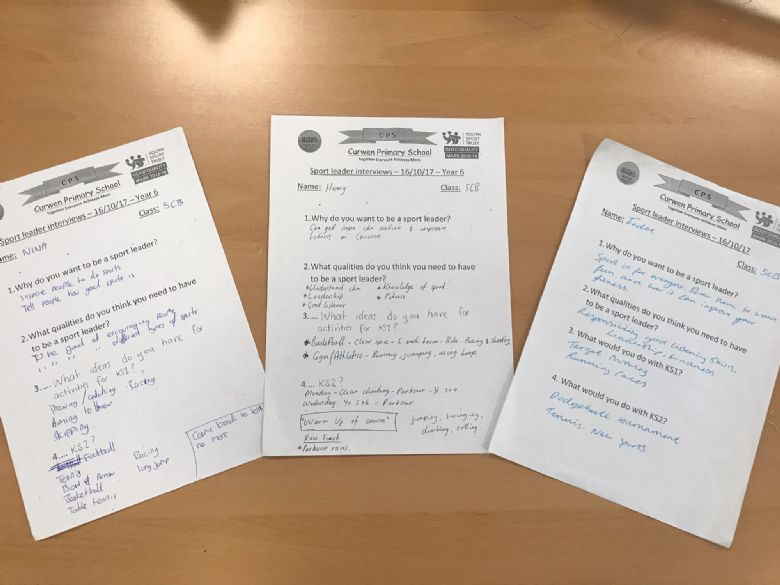 CPS
Curwen Primary School
Together Everyone Achieves More
YOUTH
SPORT
TRUST
GOLD QUALITY
MARK 2016-18
Sport leader interviews – 16/10/17 – Year 6
Name: NINA
Class: 5CB
1.Why do you want to be a sport leader?
Inspire people to do sports
Tell people how good sports is.
2.What qualities do you think you need to have
to be a sport leader?
To be good at encouraging people
" " " " different types of sports
3.... What ideas do you have for
activities for KS1?
Throwing/catching
Aiming to throw
Skipping
4.... KS2?
Football
Tennis
Bow & Arrow
Basketball
Table tennis
Racing
long jump
Come back to
me more
CPS
Curwen Primary School
Together Everyone Achieves More
YOUTH
SPORT
TRUST
GOLD QUALITY
MARK 2016-18
Sport leader interviews – 16/10/17 – Year 6
Name: Henry
Class: 5CB
1.Why do you want to be a sport leader?
Can get more chn active & improve
future in Curwen.
2.What qualities do you think you need to have
to be a sport leader?
* Understand chn * Knowledge of sport
* Leadership * Fitness
* Good listener
3.... What ideas do you have for
activities for KS1?
* Basketball - Clear space - 5 each team - Bibs - Passing & Shooting
* Gym/Athletics - Running, jumping, using hoops.
4.... KS2?
Monday - Clear climbing - Parkour - Yr 3+4
Wednesday - Yr 5+6 - Parkour
"Warm Up of course" jumping, swinging,
climbing, rolling.
Race Track
* Parkour races.
CPS
Curwen Primary School
Together Everyone Achieves More
Sport leader interviews – 16/10/17
Name:
Class: 5CB
1. Why do you want to be a sport leader?
Sport is for everyone. Show them to have
fun and how it can improve your
fitness.
2. What qualities do you think you need to have
to be a sport leader?
Responsibility, good listening skills,
Leadership, kindness
3. What would you do with KS1?
Target throwing
Running races
4. What would you do with KS2?
Dodgeball tournament
Tennis. New sports.